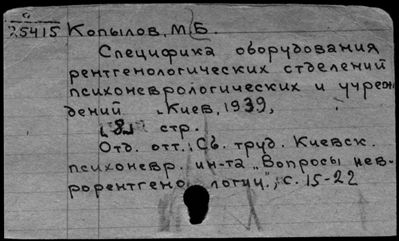 25415 Копылов, М.Б.
Специфика оборудования
рентгенологических отделений
психоневрологических и учреж
дений Киев, 1939,
8 стр.
Отд. отт.: Сб. труд. Киевск.
психоневр. ин-та „Вопросы нев-
рорентгенологии", с. 15-22